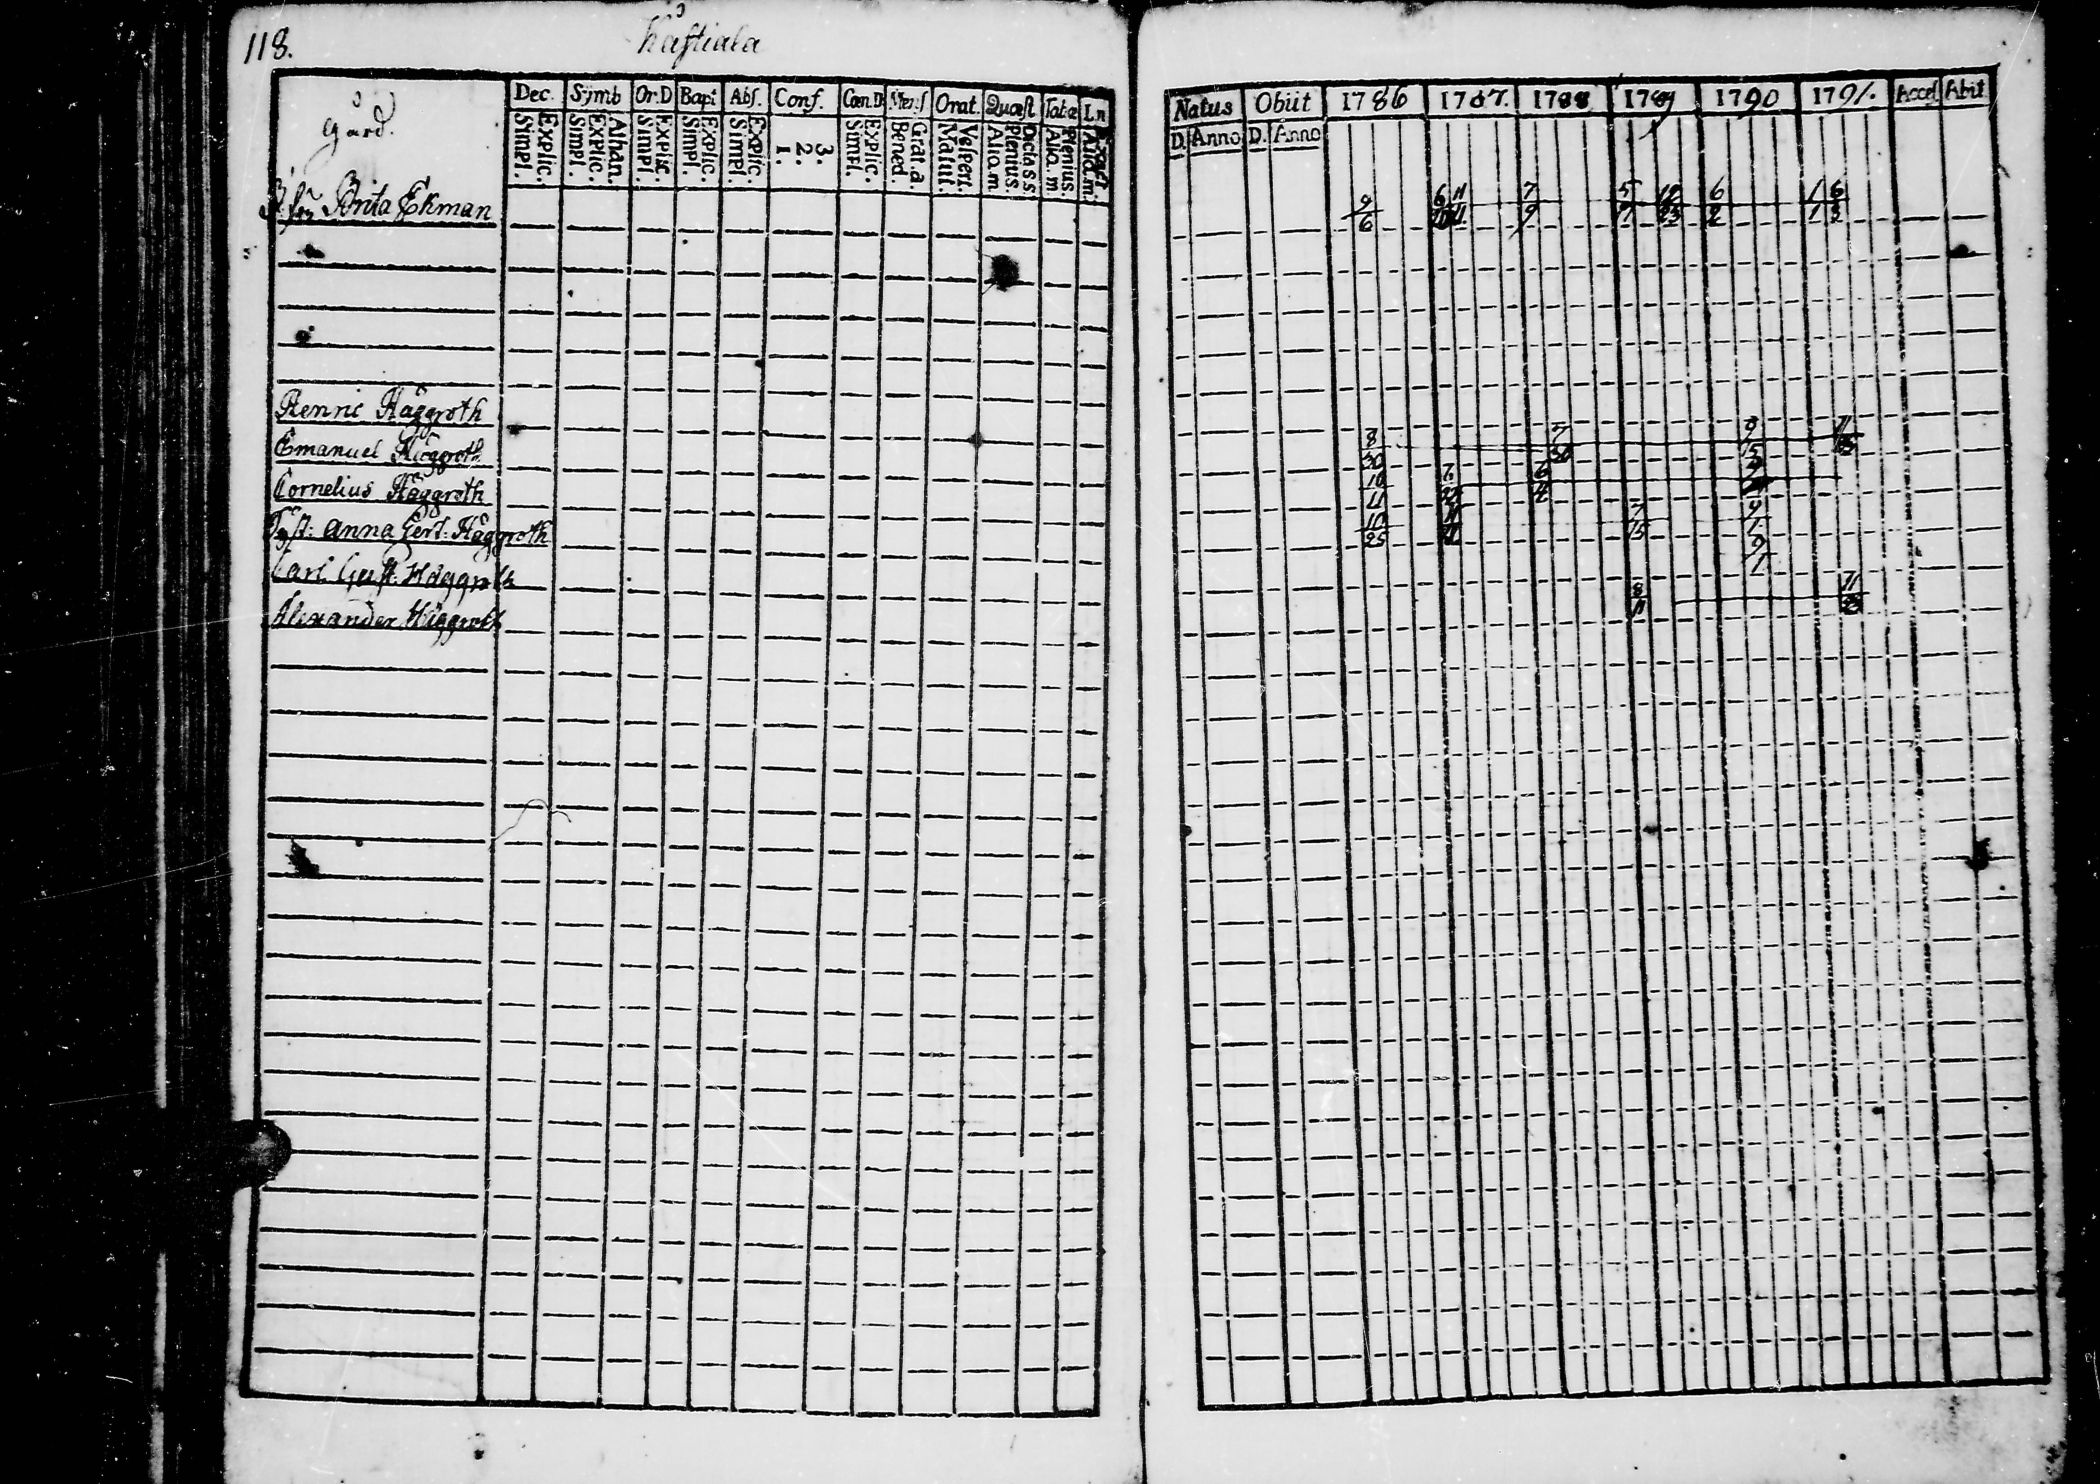 118.
Kåstiala
gård.
Dec. Symb Or:D Bapt Abs. Conf. Cæn.D Mens Orat. Quæst Tabæ Ln
Simpl. Explic. Simpl. Explic. Athan. Simpl. Explic. Simpl. Explic. Simpl. Explic. 1. 2. 3. Simpl. Explic. Bened. Grat. a. Matut. Vespert. Alio. m. Plenius. Dicta S S. Alio. m. Plenius. Alio. m. Exact
Natus Obiit 1786 1787. 1788 1789 1790 1791. Accel Abit
D. Anno D. Anno
Brita Ekman
9 6 11 7 5 12 6 1 6
6 9 23 2 1 3
Henric Häggroth
Emanuel Häggroth
8 7 9 11
30 30 15
Cornelius Häggroth
10 7 6
11
Anna Gert. Häggroth
10 11 7 9
25 15 1
Carl Gust. Häggroth
9
1
Alexander Häggroth
8 11
11 23